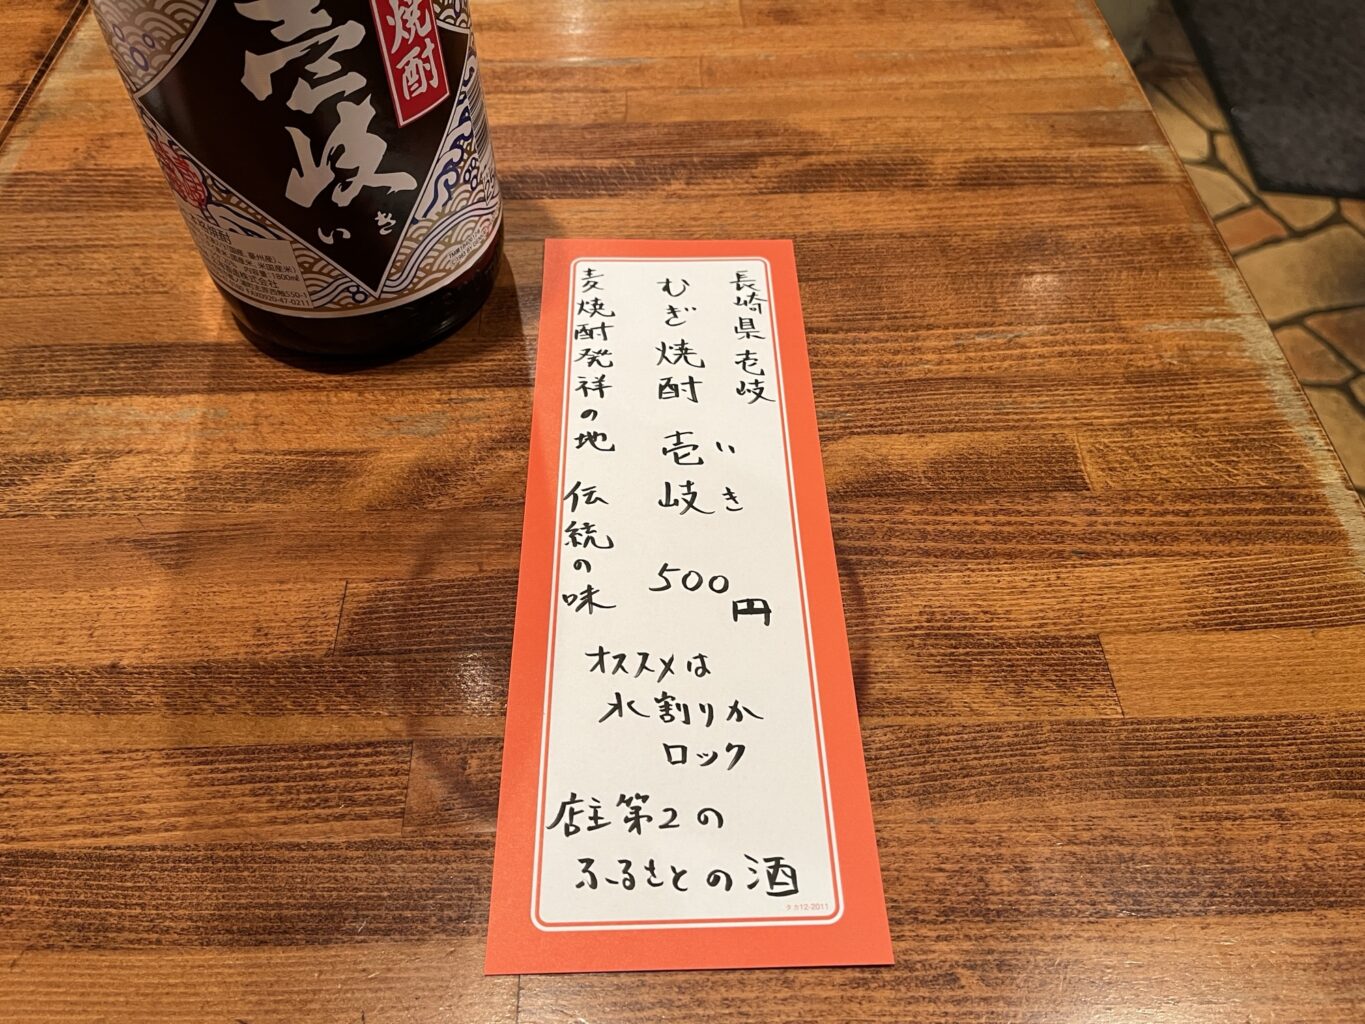 焼酎
壱岐
いき
長崎県壱岐
むぎ焼酎 壱岐 500円
いき
麦焼酎発祥の地 伝統の味
オススメは
水割りか
ロック
店主第2の
ふるさとの酒
タカ12-2011